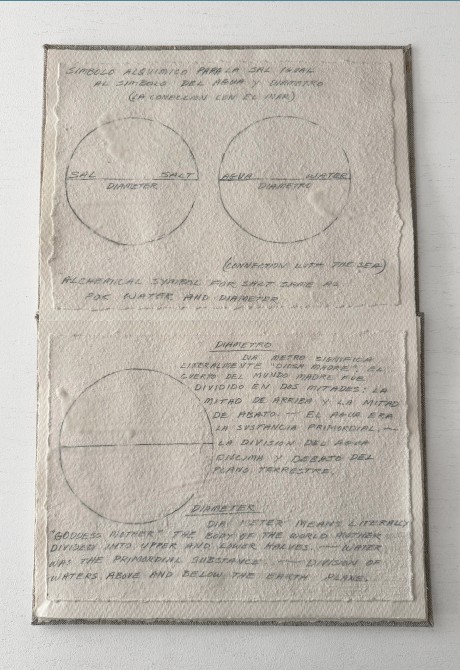 SIMBOLO ALQUIMICO PARA LA SAL IGUAL
AL SIMBOLO DEL AGUA Y DIAMETRO
(LA CONECCION CON EL MAR)
SAL SALT
DIAMETER
AGUA WATER
DIAMETRO
(CONNECTION WITH THE SEA)
ALCHEMICAL SYMBOL FOR SALT SAME AS
FOR WATER AND DIAMETER
DIAMETRO
DIA METRO SIGNIFICA
LITERALMENTE "DIOSA MADRE", EL
CUERPO DEL MUNDO MADRE FUE
DIVIDIDO EN DOS MITADES: LA
MITAD DE ARRIBA Y LA MITAD
DE ABAJO. — EL AGUA ERA
LA SUSTANCIA PRIMORDIAL. —
LA DIVISION DEL AGUA
ENCIMA Y DEBAJO DEL
PLANO TERRESTRE.
DIAMETER
DIA METER MEANS LITERALLY
"GODDESS MOTHER" THE BODY OF THE WORLD MOTHER
DIVIDED INTO UPPER AND LOWER HALVES. — WATER
WAS THE PRIMORDIAL SUBSTANCE. — DIVISION OF
WATERS ABOVE AND BELOW THE EARTH PLANE.